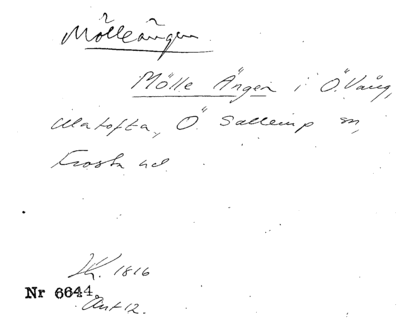 Mölleängen
Mölle Ängen i Ö. Vång,
Ullatofta, Ö Sallerup sn,
Frosta hd.
Lk. 1816
Nr 6644.
Akt 12.